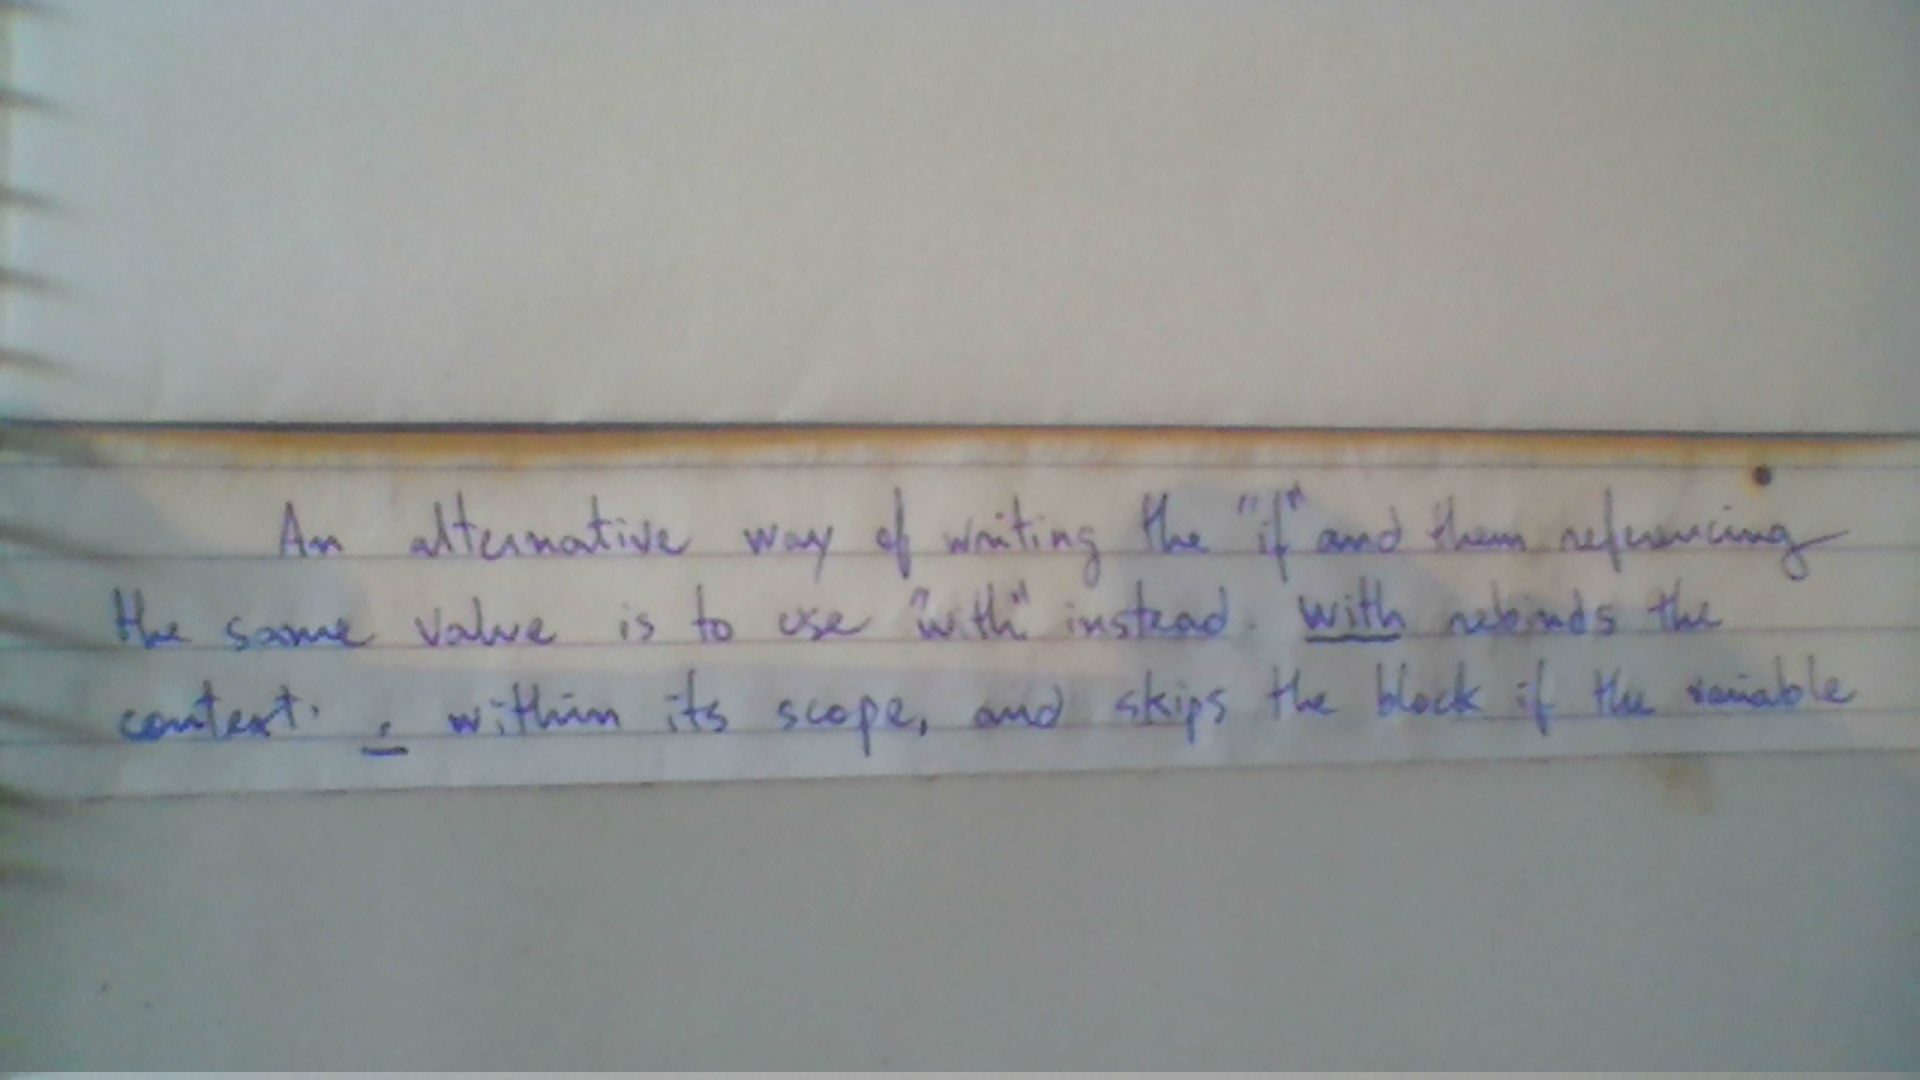 An alternative way of writing the "if" and then referencing
the same value is to use "with" instead. with rebinds the
context. . within its scope, and skips the block if the variable